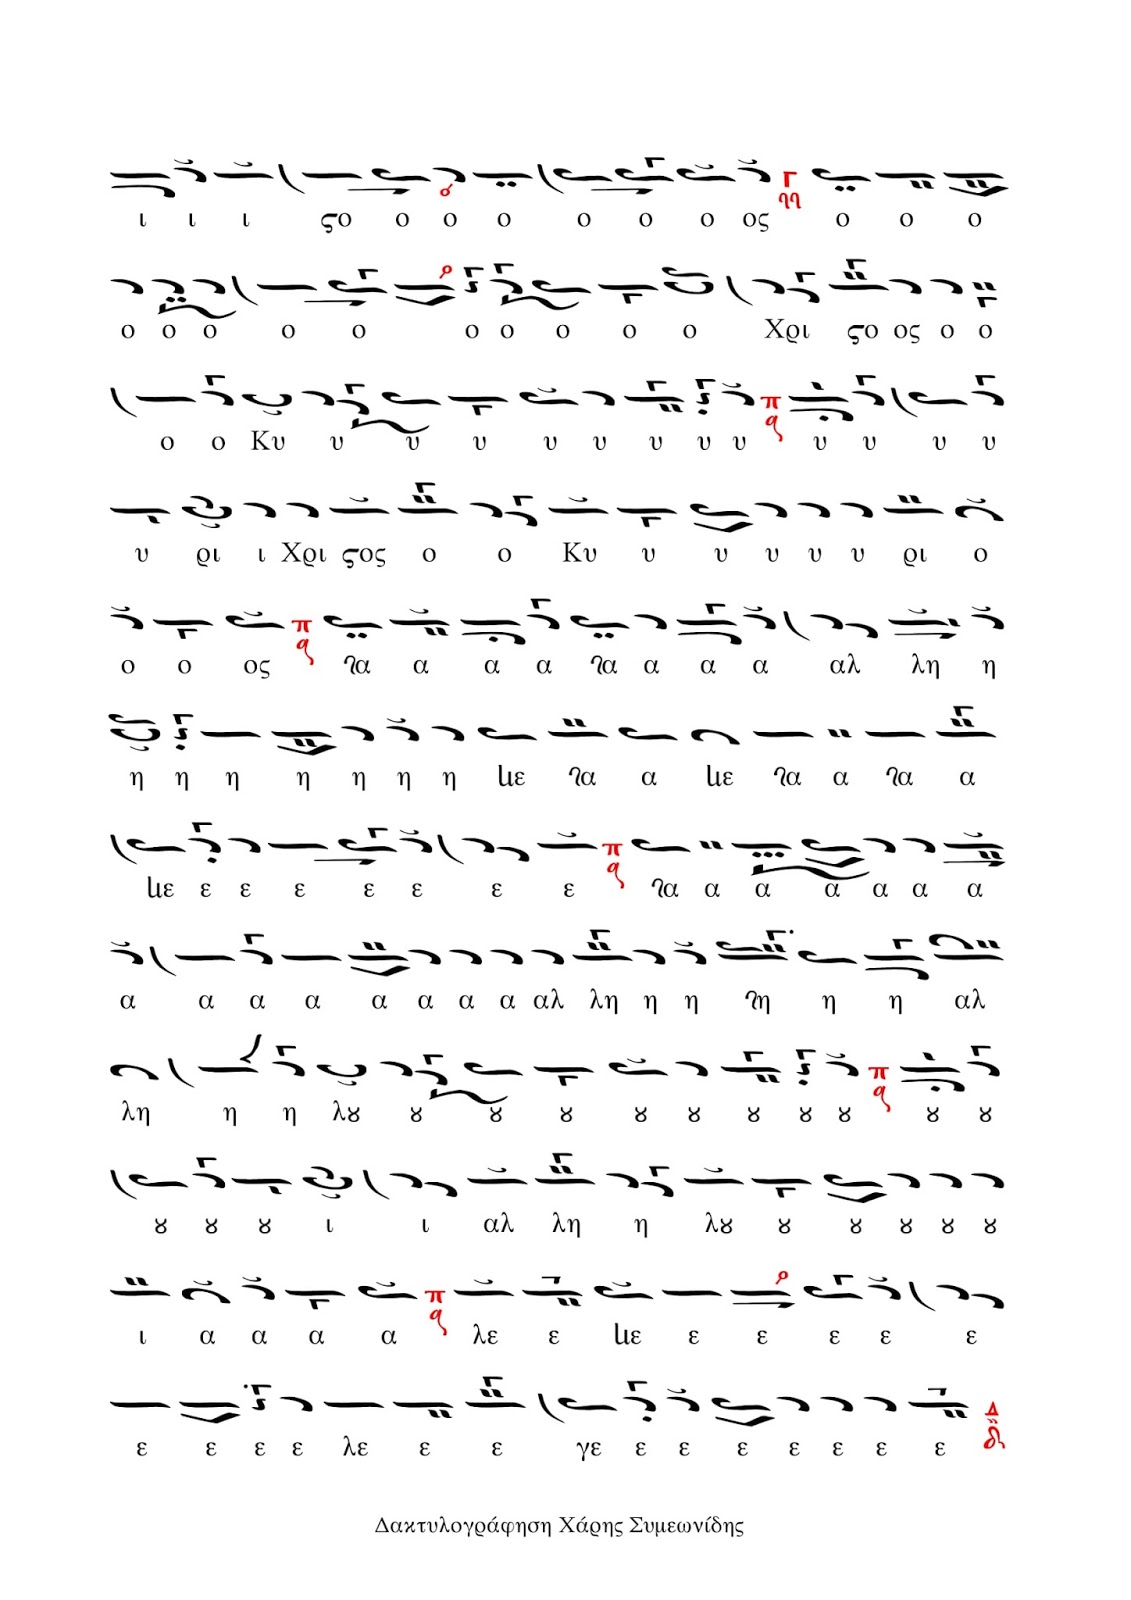 ι ι ι ϛο ο ο ο ο ο ο ος Γ ηη ο ο ο
ο ο ο ο ο ο ο ο ο ο Χρι ϛο ος ο ο
ο ο Κυ υ υ υ υ υ υ υ υ π q υ υ υ υ
υ ρι ι Χρι ϛος ο ο Κυ υ υ υ υ υ ρι ο
ο ο ος π q γα α α α γα α α α αλ λη η
η η η η η η η με γα α με γα α γα α
με ε ε ε ε ε ε ε π q γα α α α α α α
α α α α α α α α αλ λη η η γη η η αλ
λη η η λȣ ȣ ȣ ȣ ȣ ȣ ȣ ȣ ȣ π q ȣ ȣ
ȣ ȣ ȣ ι ι αλ λη η λȣ ȣ ȣ ȣ ȣ ȣ
ι α α α α π q λε ε με ε ε ε ε ε
ε ε ε ε λε ε ε γε ε ε ε ε ε ε ε Δ
Δακτυλογράφηση Χάρης Συμεωνίδης